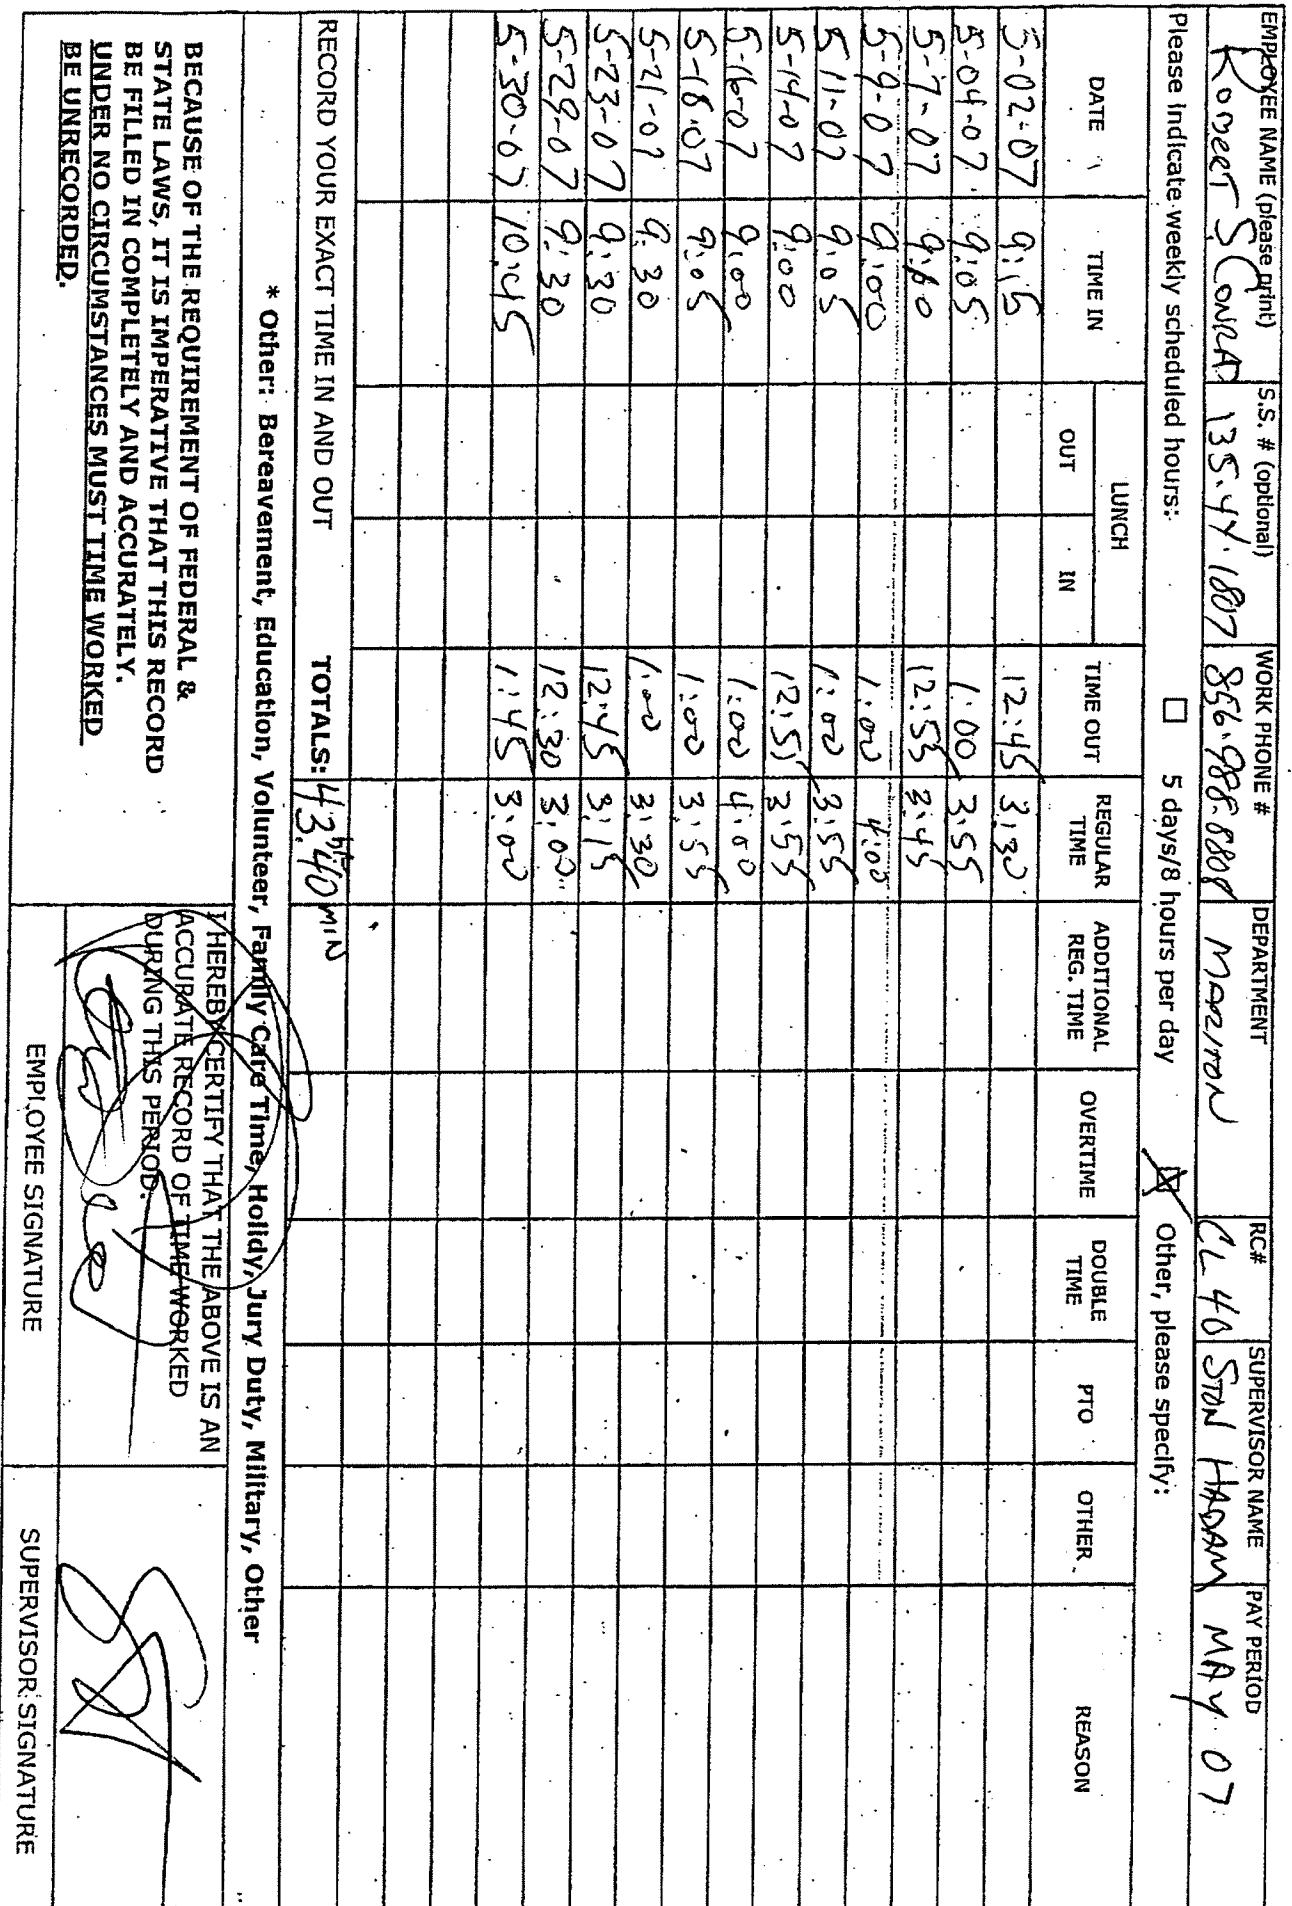 EMPLOYEE NAME (please print) S.S. # (optional) WORK PHONE # DEPARTMENT RC# SUPERVISOR NAME PAY PERIOD
ROBERT S CONRAD 135.44.1807 856.988.8808 MARLTON CL 40 STON HADAM MAY 07
Please indicate weekly scheduled hours: 5 days/8 hours per day Other, please specify:
DATE TIME IN LUNCH OUT IN TIME OUT REGULAR TIME ADDITIONAL REG. TIME OVERTIME DOUBLE TIME PTO OTHER REASON
5-02-07 9:15 12:45 3:30
5-04-07 9:05 1:00 3:55
5-7-07 9:00 12:55 3:45
5-9-07 9:00 1:00 4:00
5-11-07 9:05 1:00 3:55
5-14-07 9:00 12:55 3:55
5-16-07 9:00 1:00 4:00
5-18-07 9:05 1:00 3:55
5-21-07 9:30 1:00 3:30
5-23-07 9:30 12:45 3:15
5-29-07 9:30 12:30 3:00
5-30-07 10:45 1:45 3:00
RECORD YOUR EXACT TIME IN AND OUT TOTALS: 43 hr 40 MIN
* Other: Bereavement, Education, Volunteer, Family Care Time, Holidy, Jury Duty, Military, Other
BECAUSE OF THE REQUIREMENT OF FEDERAL &
STATE LAWS, IT IS IMPERATIVE THAT THIS RECORD
BE FILLED IN COMPLETELY AND ACCURATELY.
UNDER NO CIRCUMSTANCES MUST TIME WORKED
BE UNRECORDED.
I HEREBY CERTIFY THAT THE ABOVE IS AN
ACCURATE RECORD OF TIME WORKED
DURING THIS PERIOD.
EMPLOYEE SIGNATURE
SUPERVISOR SIGNATURE